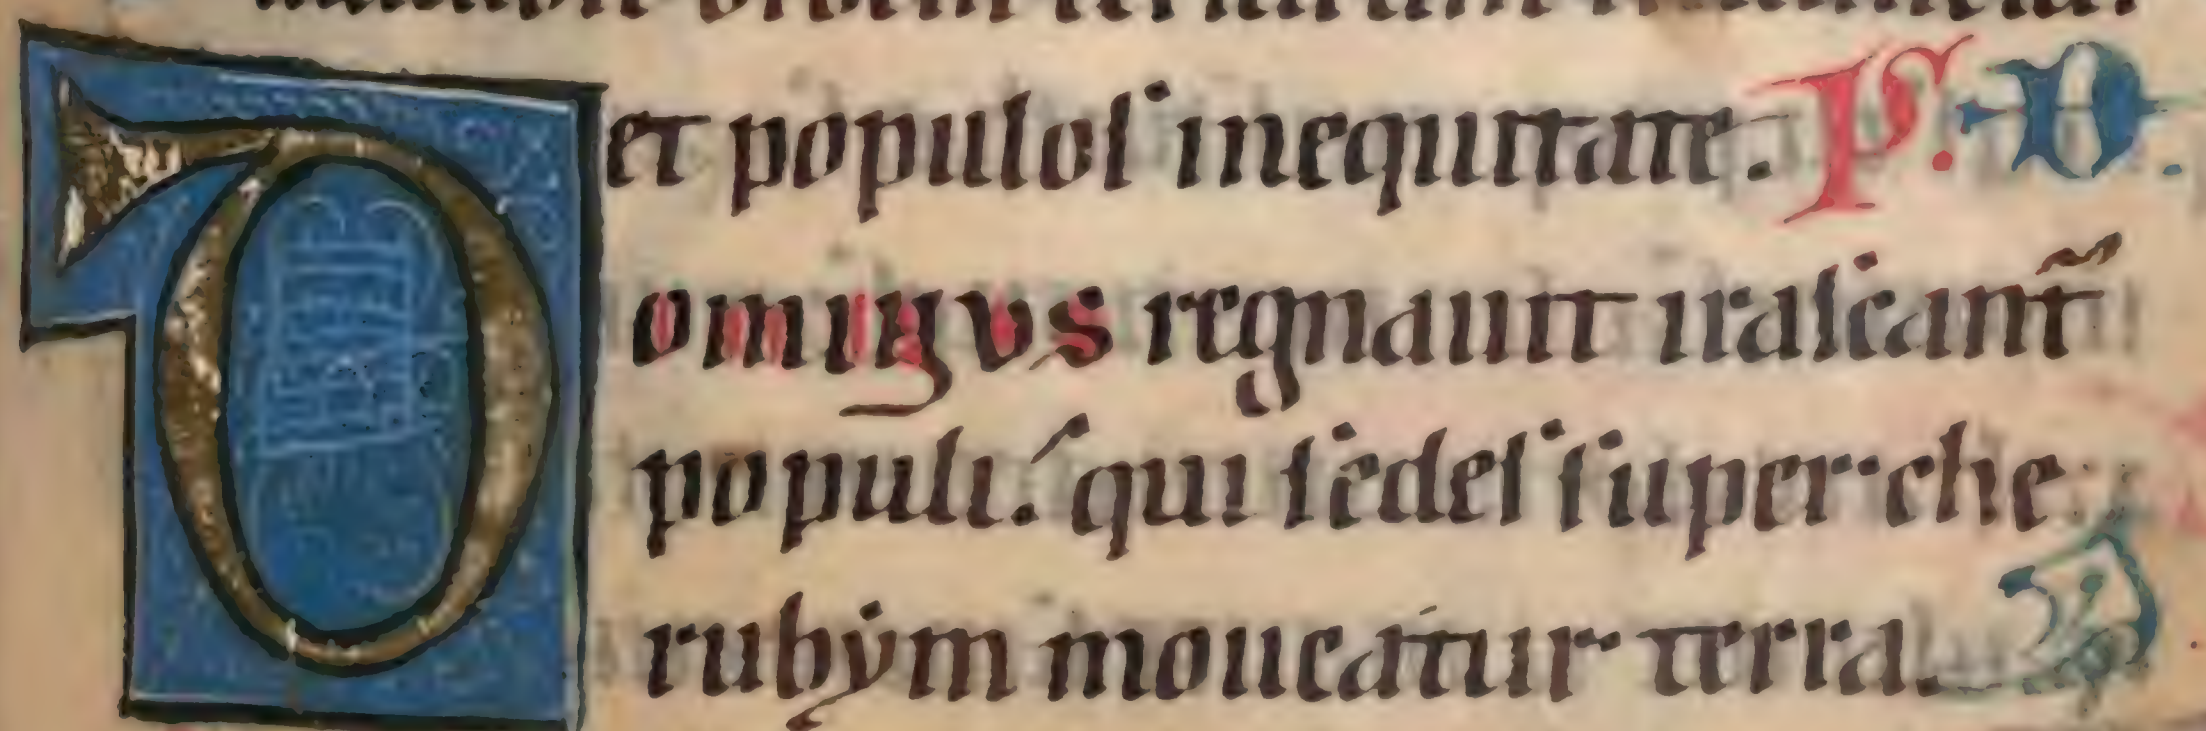 et populos in equitate. P. D.
Dominus regnauit irascant᷑
populi: qui sedes super che
rubym moueatur terra.